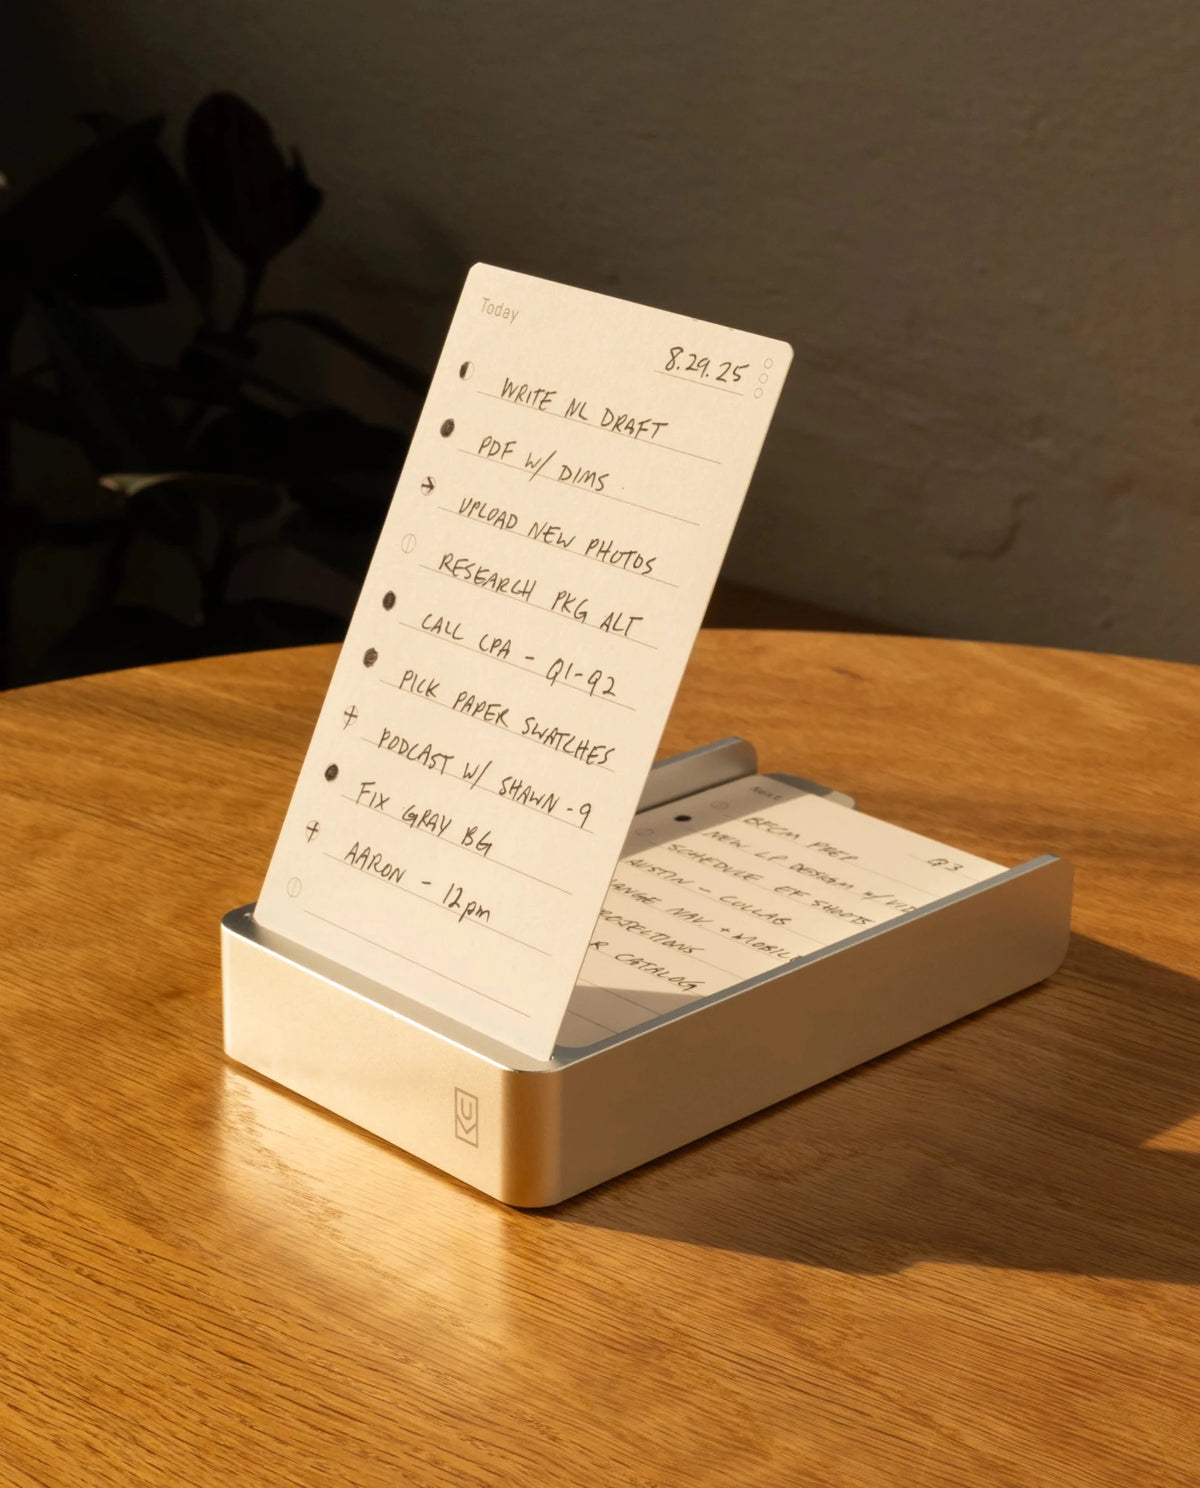 Today
8.29.25
WRITE NL DRAFT
PDF W/ DIMS
UPLOAD NEW PHOTOS
RESEARCH PKG ALT
CALL CPA - Q1-Q2
PICK PAPER SWATCHES
PODCAST W/ SHAWN - 9
FIX GRAY BG
AARON - 12pm
Next
Q3
BFCM PREP
NEW LP DESIGN W/ VID
SCHEDULE EF SHOOTS
AUSTIN - COLLAB
NAV. + MOBILE
CATALOG